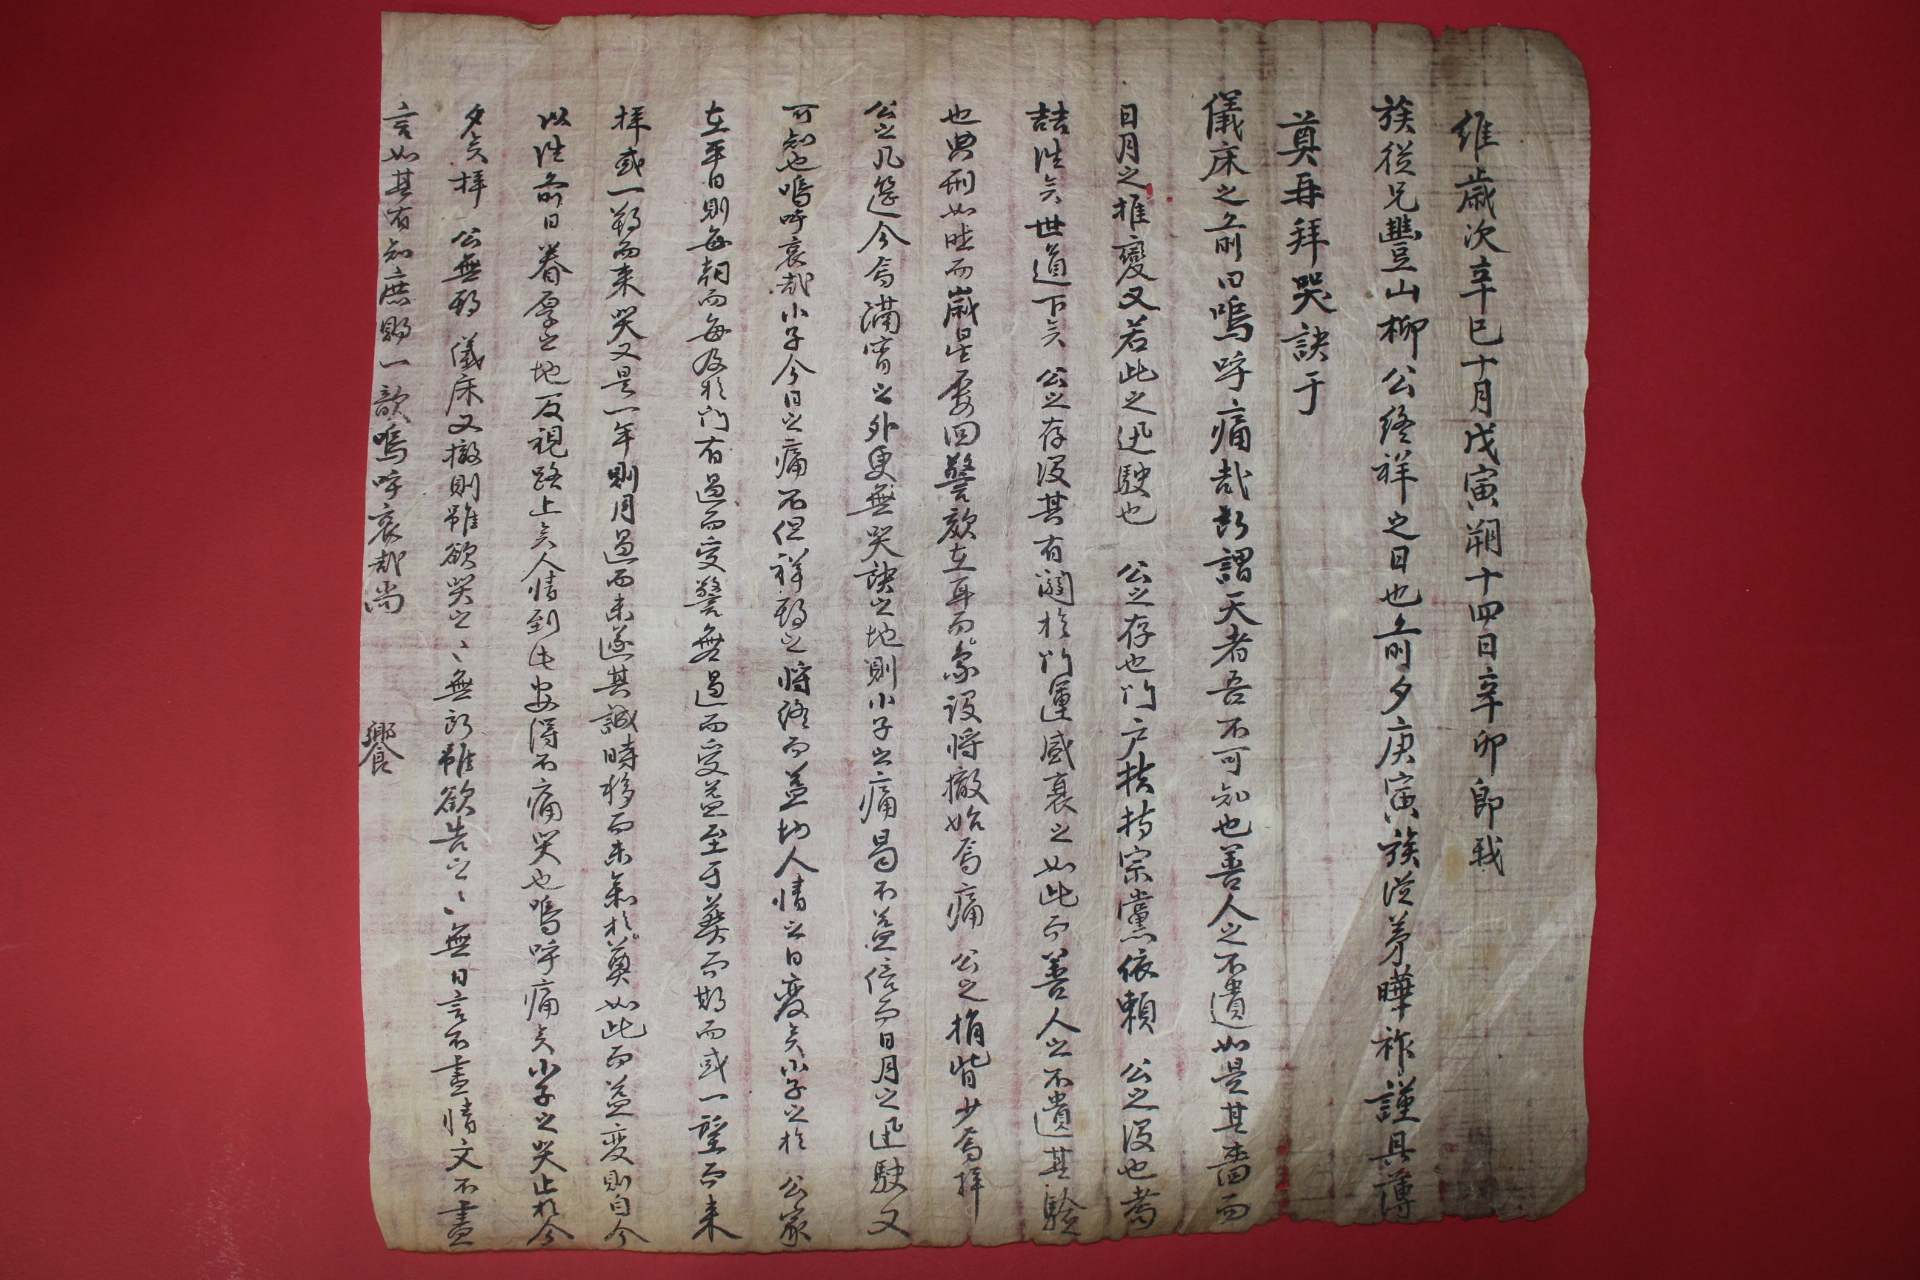 維歲次辛巳十月戊寅朔十四日辛卯即我
族從兄豊山柳公終祥之日也前夕庚寅族從弟曄祚謹具薄
奠再拜哭訣于
儀床之前曰嗚呼痛哉所謂天者吾不可知也善人之不遺如是其嗇而
日月之推變又若此之迅駛也 公之存也門戶扶持宗黨依賴 公之沒也耆
喆洪矣世道下矣 公之存沒其有關於門運盛衰之如此而善人之不遺其驗
也典刑如昨而歲星要回警欬在耳而象設將撤始焉痛 公之捐背少焉拜
公之几筵今焉滿宵之外更無哭訣之地則小子之痛曷不益倍而日月之迅駛又
可知也嗚呼哀哉小子今日之痛不但祥期之將終而益切人情之日變矣小子之於 公家
在平日則每朝而每夜於門有過而受警無過而受益至于葬而期而或一望而來
拜或一朔而來哭又是一年則月過而未遂其誠時移而未參於奠如此而益變則自今
以往前日眷厚之地反視路上矣人情到此安得不痛哭也嗚呼痛矣小子之哭止於今
夕矣拜 公無期 儀床又撤則雖欲哭之〻無所雖欲告之〻無日言不盡情文不盡
言如其有知庶賜一歆嗚呼哀哉尚
饗